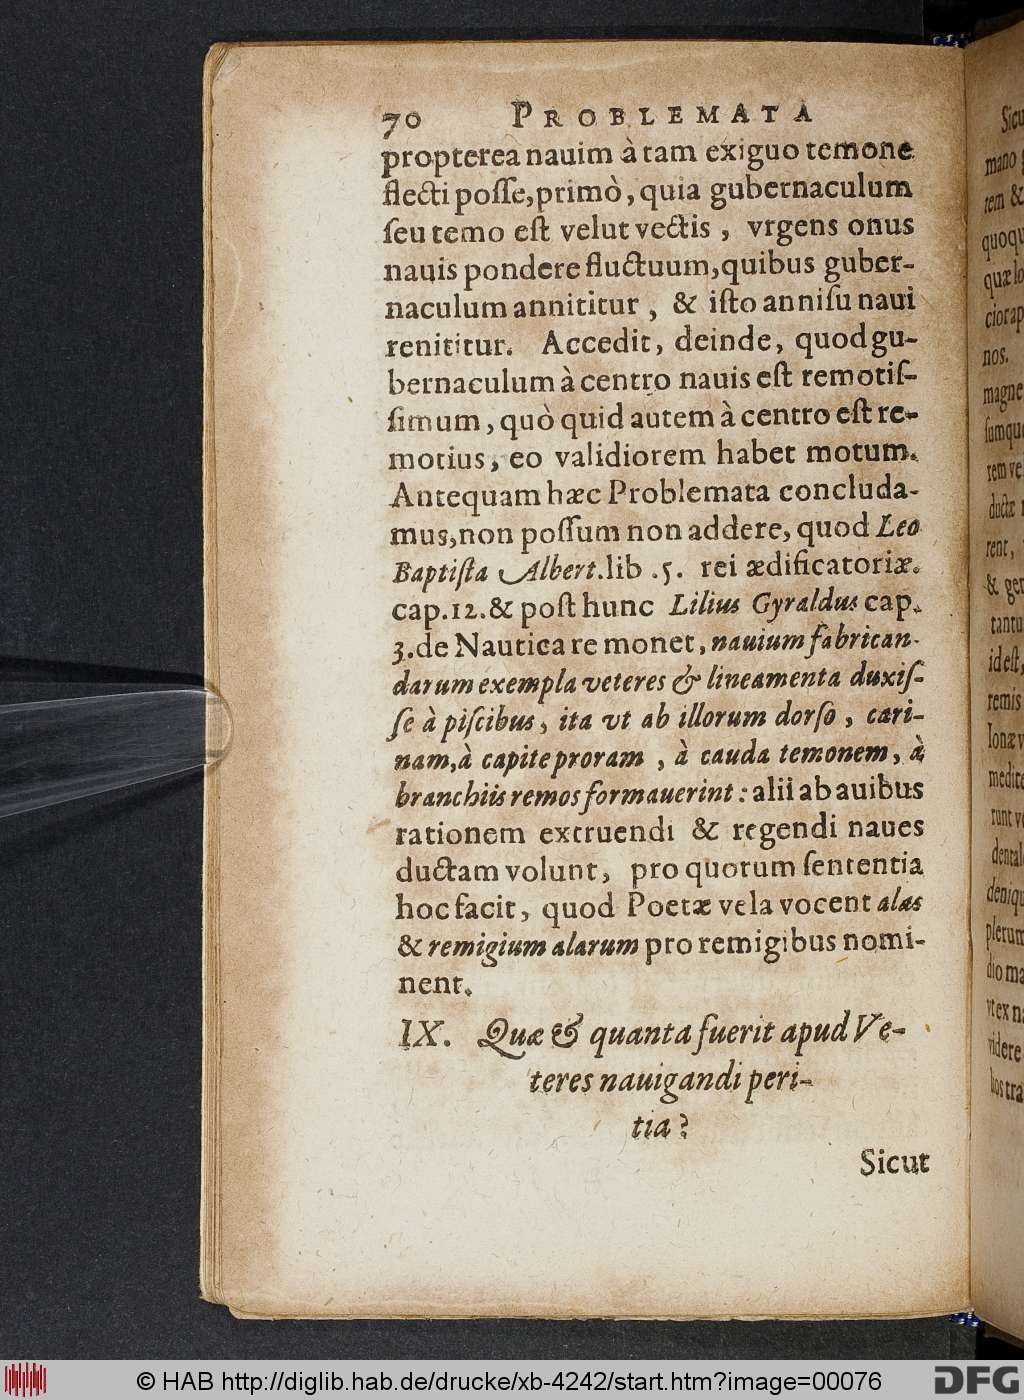 70 PROBLEMATA
propterea nauim à tam exiguo temone
flecti poſſe, primò, quia gubernaculum
ſeu temo eſt velut vectis, vrgens onus
nauis pondere fluctuum, quibus guber-
naculum annititur, & iſto anniſu naui
renititur. Accedit, deinde, quod gu-
bernaculum à centro nauis eſt remotiſ-
ſimum, quò quid autem à centro eſt re-
motius, eo validiorem habet motum.
Antequam hæc Problemata concluda-
mus, non poſſum non addere, quod Leo
Baptiſta Albert. lib. 5. rei ædificatoriæ.
cap. 12. & poſt hunc Lilius Gyraldus cap.
3. de Nautica re monet, nauium fabrican-
darum exempla veteres & lineamenta duxiſ-
ſe à piſcibus, ita vt ab illorum dorſo, cari-
nam, à capite proram, à cauda temonem, à
branchiis remos formauerint: alii ab auibus
rationem extruendi & regendi naues
ductam volunt, pro quorum ſententia
hoc facit, quod Poetæ vela vocent alas
& remigium alarum pro remigibus nomi-
nent.
IX. Quæ & quanta fuerit apud Ve-
teres nauigandi peri-
tia?
Sicut
© HAB http://diglib.hab.de/drucke/xb-4242/start.htm?image=00076
DFG